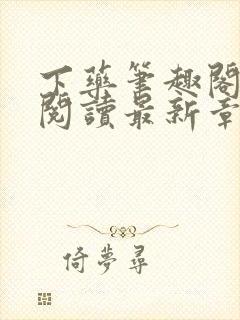 下藥筆趣閣
閱讀最新章
倚夢尋